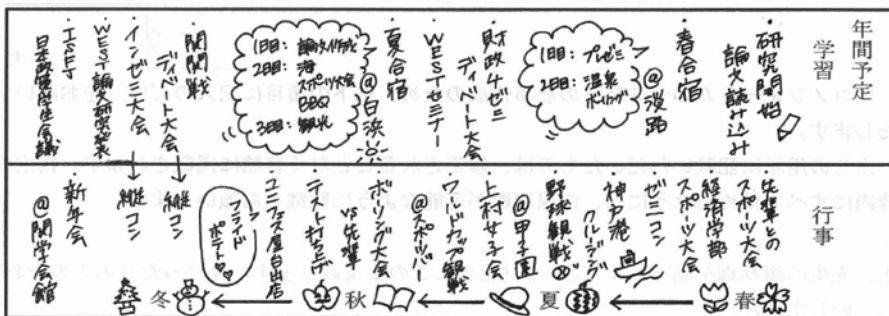 年間予定
学習
・研究開始
論文読み込み
・春合宿
@淡路
1日目: プレゼミ
2日目: 温泉
ボーリング
・財政4ゼミ
ディベート大会
・WESTセミナー
・夏合宿
@白浜
1日目: 論文作成
2日目: 海
スポーツ大会
BBQ
3日目: 観光
・関関戦
ディベート大会
・インゼミ大会
・WEST論文研究発表
・ISFJ
・日本政策学生会議
行事
先輩との
スポーツ大会
経済学部
スポーツ大会
ゼミコン
神戸港
クルージング
野球観戦
@甲子園
上村女子会
ワールドカップ観戦
@スポーツバー
ボーリング大会
vs先輩
ディベート打ち上げ
エコフェス屋台出店
フライド
ポテト
縦コン
縦コン
新年会
@関学会館
春
夏
秋
冬